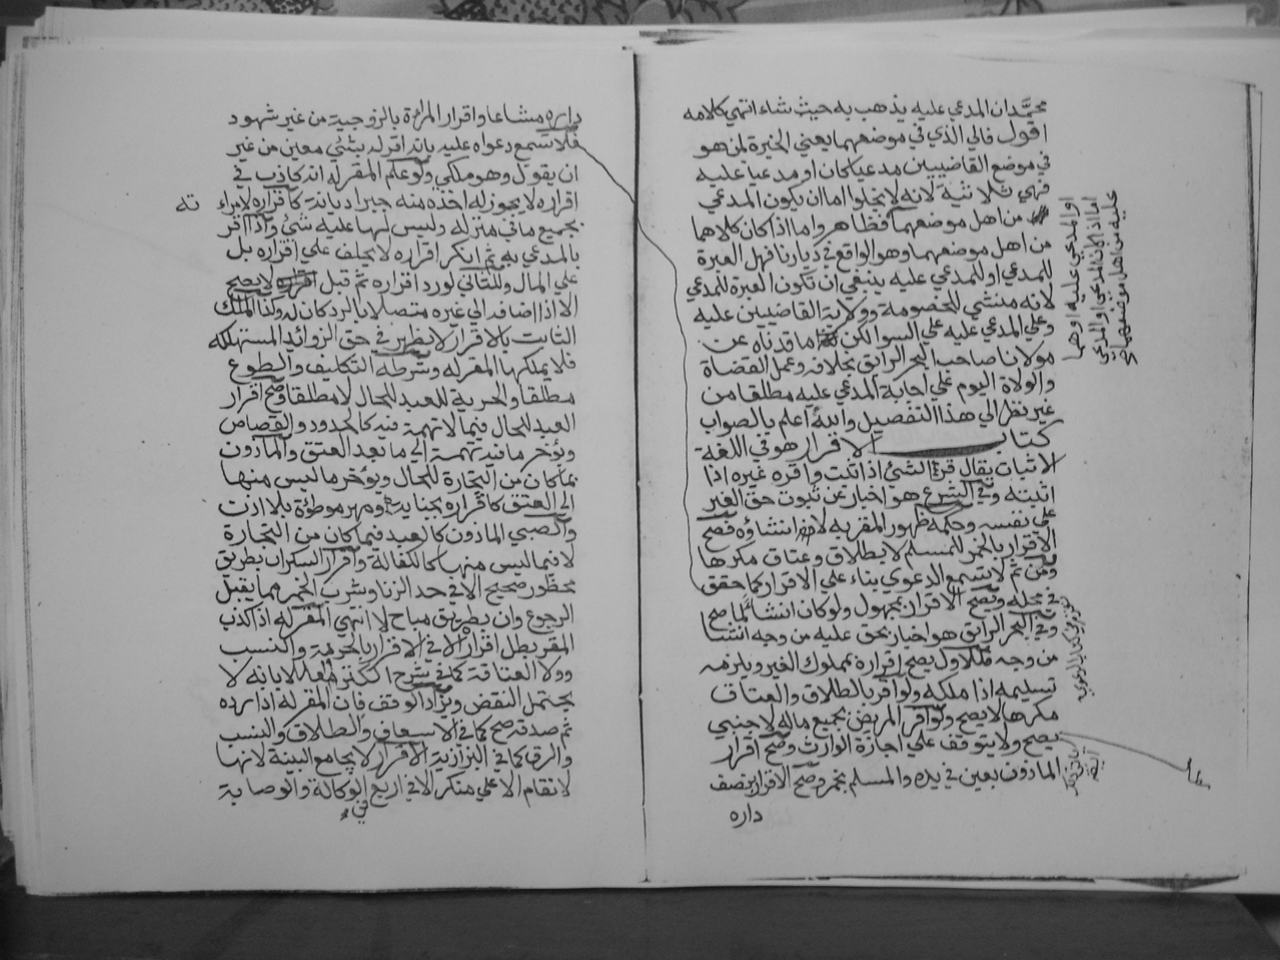 محمد ان المدعي عليه يذهب به حيث شاء انتهي كلامه
اقول فالي الذي في موضعهما يعني الخيرة لمن هو
في موضع القاضيين مدعيا كان او مدعيا عليه
فهي ثلاثية لانه لا يخلوا اما ان يكون المدعي
من اهل موضعهما فظاهر واما اذا كان كلاهما
من اهل موضعهما وهو الواقع في ديارنا فهل العبرة
للمدعي او للمدعي عليه ينبغي ان تكون العبرة للمدعي
لانه منشئ للخصومة وولاية القاضيين عليه
وعلي المدعي عليه علي السوا لكن ما قدمناه عن
مولانا صاحب البحر الرايق بخلافه وعمل القضاة
والولاة اليوم علي اجابة المدعي عليه مطلقا من
غير نظر الي هذا التفصيل والله اعلم بالصواب
كتاب الاقرار هو في اللغة
الاثبات يقال قر الشئ اذا ثبت واقره غيره اذا
اثبته وفي الشرع هو اخبار عن ثبوت حق الغير
علي نفسه وحكمه ظهور المقر به لا انشاؤه فصح
الاقرار بالخمر للمسلم لا بطلاق وعتاق مكرها
ومن ثم لا تسمع الدعوي بناء علي الاقرار كما حقق
في محله وصح الاقرار بمجهول ولو كان انشاء لما صح
وفي البحر الرايق هو اخبار بحق عليه من وجه انشا
من وجه فللاول يصح اقراره بمملوك الغير ويلزمه
تسليمه اذا ملكه ولو اقر بالطلاق والعتاق
مكرها لا يصح ولو اقر المريض بجميع ماله لاجنبي
يصح ولا يتوقف علي اجازة الوارث وصح اقرار
الماذون بعين في يده والمسلم بخمر وصح الاقرار بنصف
داره
او المدعي عليه او هما
اما اذا كان المدعي او المدعي
عليه من اهل موضعهما
داره مشاعا واقرار المراة بالزوجية من غير شهود
فلا تسمع دعواه عليه بانه اقر له بشئي معين من غير
ان يقول وهو ملكي ولو علم المقر له انه كاذب في
اقراره لا يجوز له اخذه منه جبرا ديانة كاقراره لامراته
بجميع ما في منزله وليس لها عليه شئ واذا اقر
بالمدعي به ثم انكر اقراره لا يحلف علي اقراره بل
علي المال وللثاني لو رد اقراره ثم قبل لا يصح
الا اذا اضافه الي غيره متصلا بالرد كان له وكذا الملك
الثابت بالاقرار لا يظهر في حق الزوائد المستهلكه
فلا يملكها المقر له وشرطه التكليف والطوع
مطلقا والحرية للعبد للحال لا مطلقا وصح اقرار
العبد للحال فيما لا تهمة فيه كالحدود والقصاص
ويؤخر ما فيه تهمة الي ما بعد العتق والماذون
بما كان من التجارة للحال ويؤخر ما ليس منها
الي العتق كاقراره بجناية ومهر موطؤة بلا اذن
والصبي الماذون كالعبد فيما كان من التجارة
لا فيما ليس منها كالكفالة واقرار السكران بطريق
محظور صحيح الا في حد الزنا وشرب الخمر مما يقبل
الرجوع وان بطريق مباح لا انتهي المقر له اذا كذب
المقر بطل اقراره الا في الاقرار بالحرية والنسب
وولا العتاقة كما في شرح الكنز معللا بانه لا
يحتمل النقض ويزاد الوقف فان المقر له اذا رده
ثم صدقه صح كما في الاسعاف والطلاق والنسب
والرق كما في البزازية الاقرار لا يجامع البينة لانها
لا تقام الا علي منكر الا في اربع الوكالة والوصاية
في